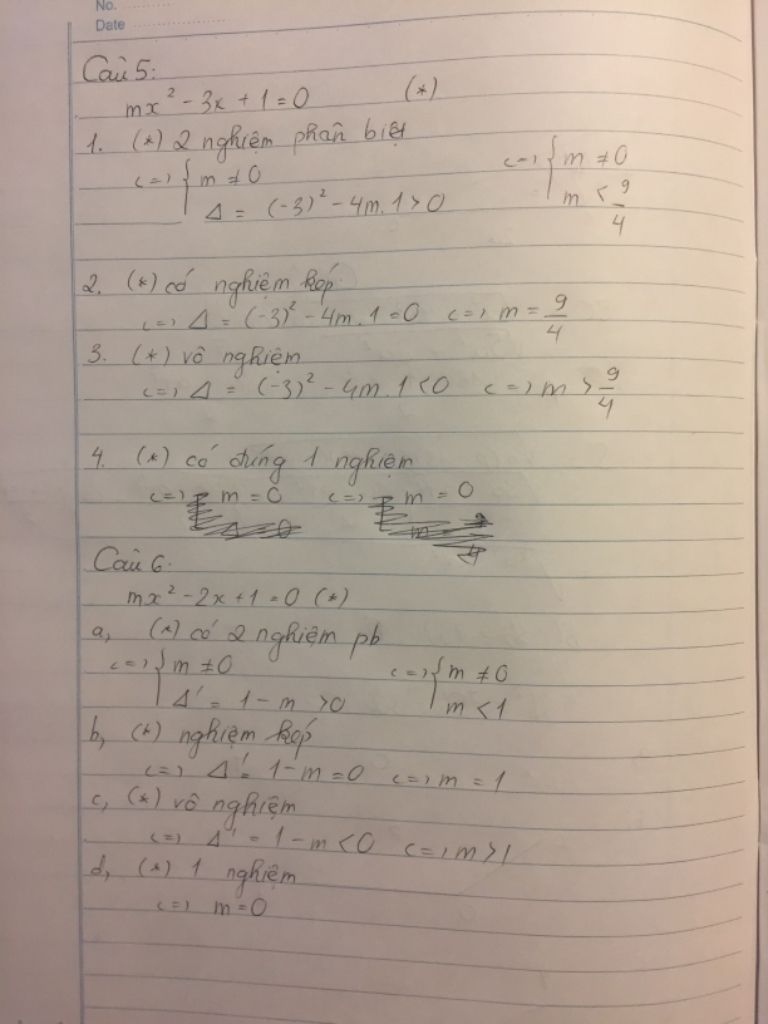 No. ............
Date .....................
Câu 5:
mx² - 3x + 1 = 0 (*)
1. (*) 2 nghiệm phân biệt
<=> { m ≠ 0 <=> { m ≠ 0
Δ = (-3)² - 4m.1 > 0 m < 9/4
2. (*) có nghiệm kép
<=> Δ = (-3)² - 4m.1 = 0 <=> m = 9/4
3. (*) vô nghiệm
<=> Δ = (-3)² - 4m.1 < 0 <=> m > 9/4
4. (*) có đúng 1 nghiệm
<=> m = 0 <=> m = 0
Câu 6:
mx² - 2x + 1 = 0 (*)
a, (*) có 2 nghiệm pb
<=> { m ≠ 0 <=> { m ≠ 0
Δ' = 1 - m > 0 m < 1
b, (*) nghiệm kép
<=> Δ' = 1 - m = 0 <=> m = 1
c, (*) vô nghiệm
<=> Δ' = 1 - m < 0 <=> m > 1
d, (*) 1 nghiệm
<=> m = 0